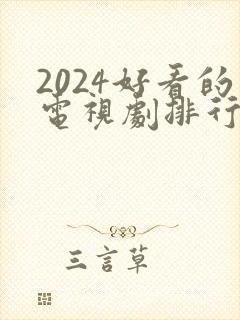 2024好看的
電視劇排行
三言草